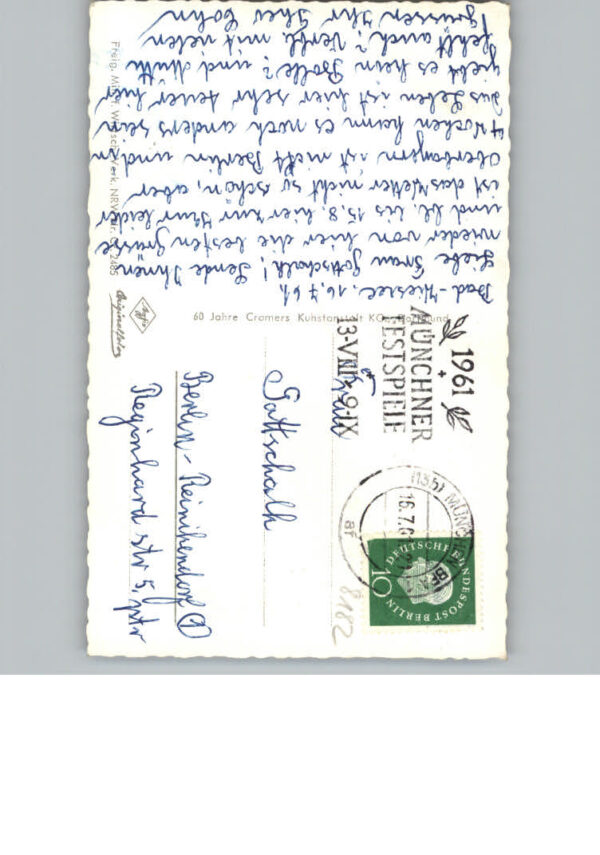 Bad-Wiessee. 16.7.61.
Liebe Frau Gottschalk! Sende Ihnen
wieder von hier die besten Grüsse
und bl. bis 15.8. hier zur Kur leider
ist das Wetter nicht so schön, aber
Oberbayern ist nicht Berlin und in
4 Wochen kann es noch anders sein
Das Leben ist hier sehr teuer
geht es herrn Bolle? und Mutti
fehlt auch? Verbl. mit vielen
Grüssen Ihr Theo Cohn
Freig. Min. f. Wirtsch.
Verk. NRW
2485
Agfa
Originalfoto
60 Jahre Cramers Kunstanstalt KG, Dortmund
1961
MÜNCHNER
FESTSPIELE
13.VIII - 9.IX
(13b) MÜNCHEN
16.7.61
af
DEUTSCHE BUNDESPOST BERLIN
10
8182
Frau
Gottschalk
Berlin-Reinikendorf (1)
Reginhard str 5, ptr